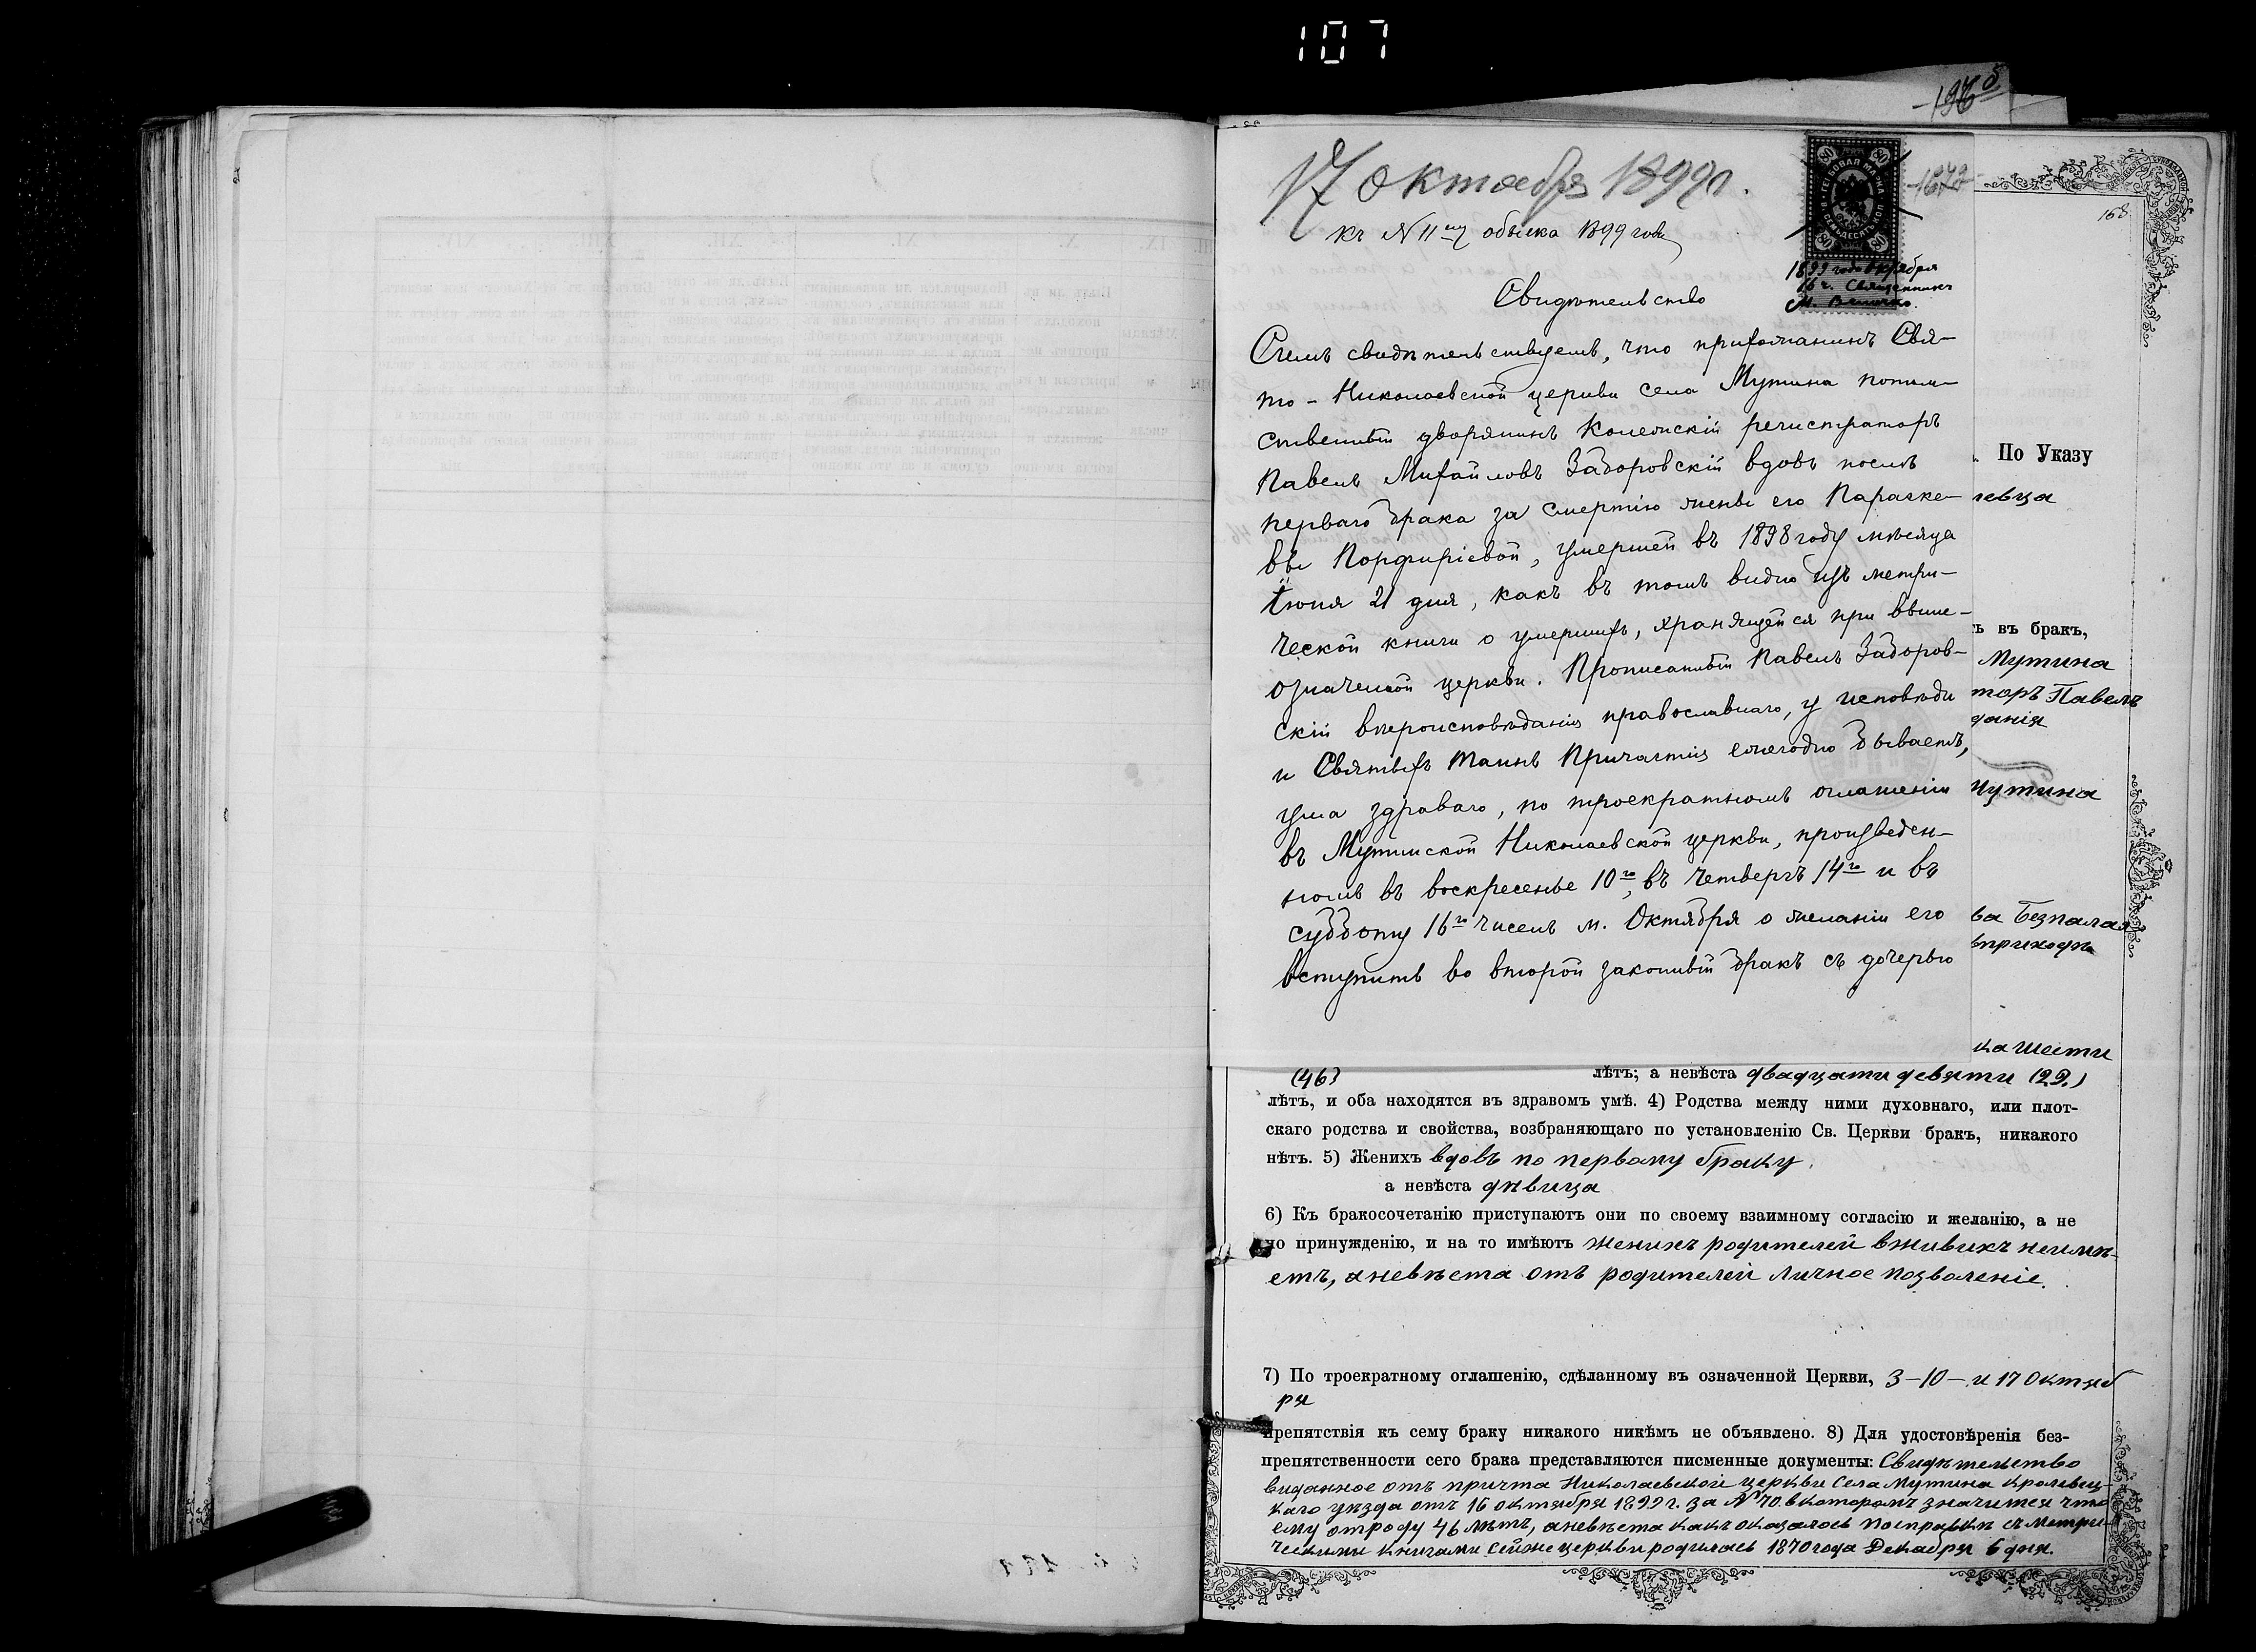 107
17 Октября 1899 г.
къ N 11му обыска 1899 года
80 80
ГЕРБОВАЯ МАРКА
80 80
1899 года октября
16 г. Священникъ
М. Величко.
168
Свидѣтельство
Симъ свидѣтельствуемъ, что прихожанинъ Свя-
то-Николаевской церкви села Мутина потом-
ственный дворянинъ Колежскій регистраторъ
Павелъ Михайловъ Заборовскій вдовъ послѣ
перваго брака за смертію жены его Параске-
вы Порфиріевой, умершей въ 1898 году мѣсяца
Іюня 21 дня, какъ въ томъ видно изъ метри-
ческой книги о умершихъ, хранящейся при выше-
означенной церкви. Прописанный Павелъ Заборов-
скій вѣроисповѣданія православнаго, у исповѣди
и Святыхъ Таинъ Причастія ежегодно бываетъ,
ума здраваго, по троекратномъ оглашеніи
въ Мутинской Николаевской церкви, произведен-
номъ въ воскресенье 10го, въ четвергъ 14го и въ
субботу 16го чиселъ м. Октября о желаніи его
вступить во второй законный бракъ съ дочерью
По Указу
левца
ъ въ бракъ,
Мутина
торъ Павелъ
данія
Мутина
ва Безпалая
вприходѣ
ка шести
(46) лѣтъ; а невѣста двадцати девяти (29.)
лѣтъ, и оба находятся въ здравомъ умѣ. 4) Родства между ними духовнаго, или плот-
скаго родства и свойства, возбраняющаго по установленію Св. Церкви бракъ, никакого
нѣтъ. 5) Женихъ вдовъ по первому браку.
а невѣста дѣвица
6) Къ бракосочетанію приступаютъ они по своему взаимному согласію и желанію, а не
по принужденію, и на то имѣютъ женихъ родителей вживихъ неимѣ-
етъ, аневѣста отъ родителей личное позволеніе.
7) По троекратному оглашенію, сдѣланному въ означенной Церкви, 3-10- и 17 Октяб
ря
препятствія къ сему браку никакого никѣмъ не объявлено. 8) Для удостовѣренія без-
препятственности сего брака представляются писменные документы: Свидѣтельство
виданное отъ причта Николаевской церкви Села Мутина кролевец-
каго уѣзда отъ 16 октября 1899 г. за № 70. вкоторомъ значится что
ему отроду 46 лѣтъ, аневѣста какъ оказалось посправкѣ съ метри-
ческими книгами сейже церкви родилась 1870 года Декабря 6 дня.